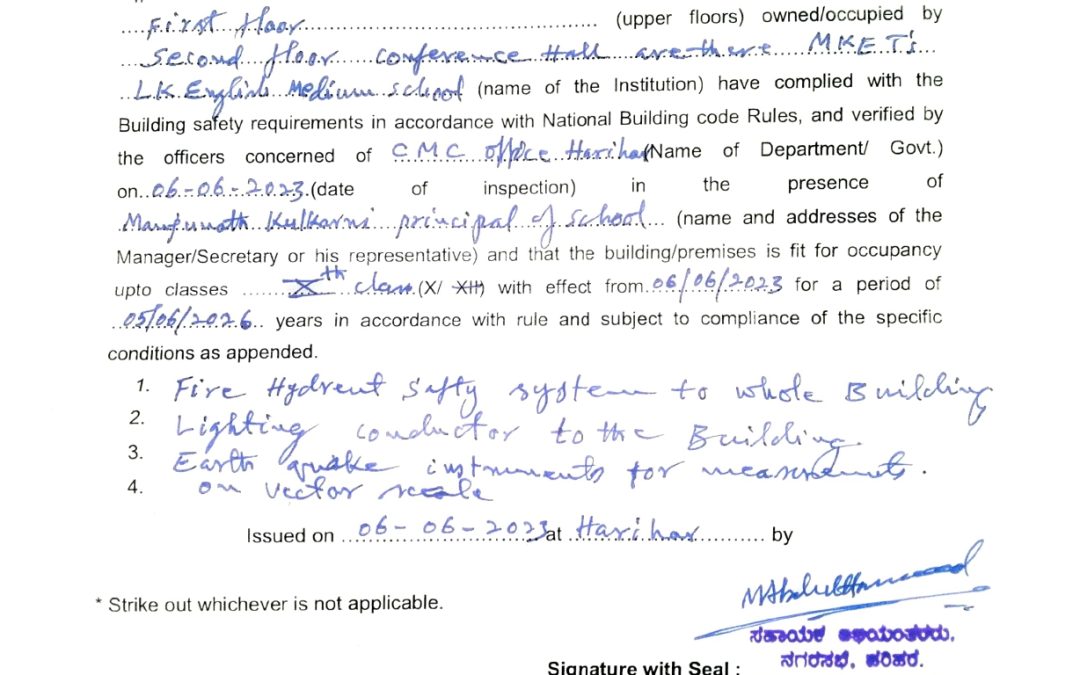 First floor (upper floors) owned/occupied by
Second floor conference Hall are there MKET's
LK English Medium school (name of the Institution) have complied with the
Building safety requirements in accordance with National Building code Rules, and verified by
the officers concerned of CMC office Harihar (Name of Department/ Govt.)
on 06-06-2023 (date of inspection) in the presence of
Manjunath Kulkarni principal of school (name and addresses of the
Manager/Secretary or his representative) and that the building/premises is fit for occupancy
upto classes Xth class (X/ XII) with effect from 06/06/2023 for a period of
05/06/2026 years in accordance with rule and subject to compliance of the specific
conditions as appended.
1. Fire Hydrent Safty system to whole Building
2. Lighting conductor to the Building.
3. Earth quake instruments for measurements.
4. on vector scale
Issued on 06-06-2023 at Harihar by
* Strike out whichever is not applicable.
ಸಹಾಯಕ ಅಭಿಯಂತರರು,
ನಗರಸಭೆ, ಹರಿಹರ.
Signature with Seal :